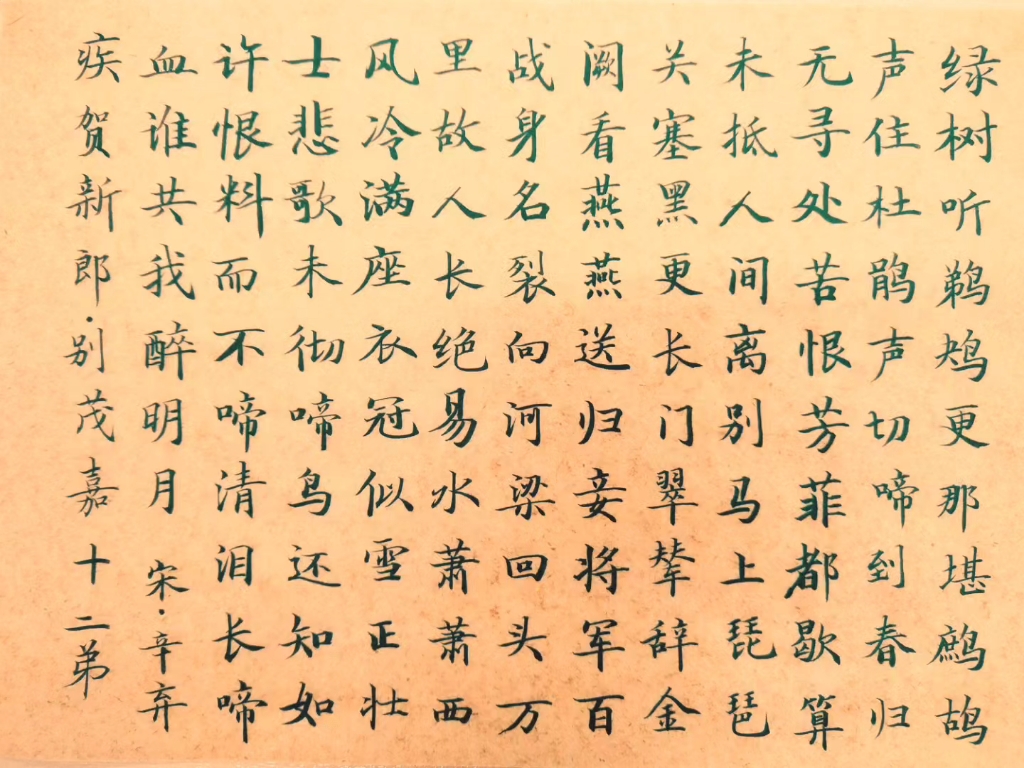 绿树听鹈𫛞更那堪鹧鸪
声住杜鹃声切啼到春归
无寻处苦恨芳菲都歇算
未抵人间离别马上琵琶
关塞黑更长门翠辇辞金
阙看燕燕送归妾将军百
战身名裂向河梁回头万
里故人长绝易水萧萧西
风冷满座衣冠似雪正壮
士悲歌未彻啼鸟还知如
许恨料而不啼清泪长啼
血谁共我醉明月 宋·辛弃
疾贺新郎·别茂嘉十二弟